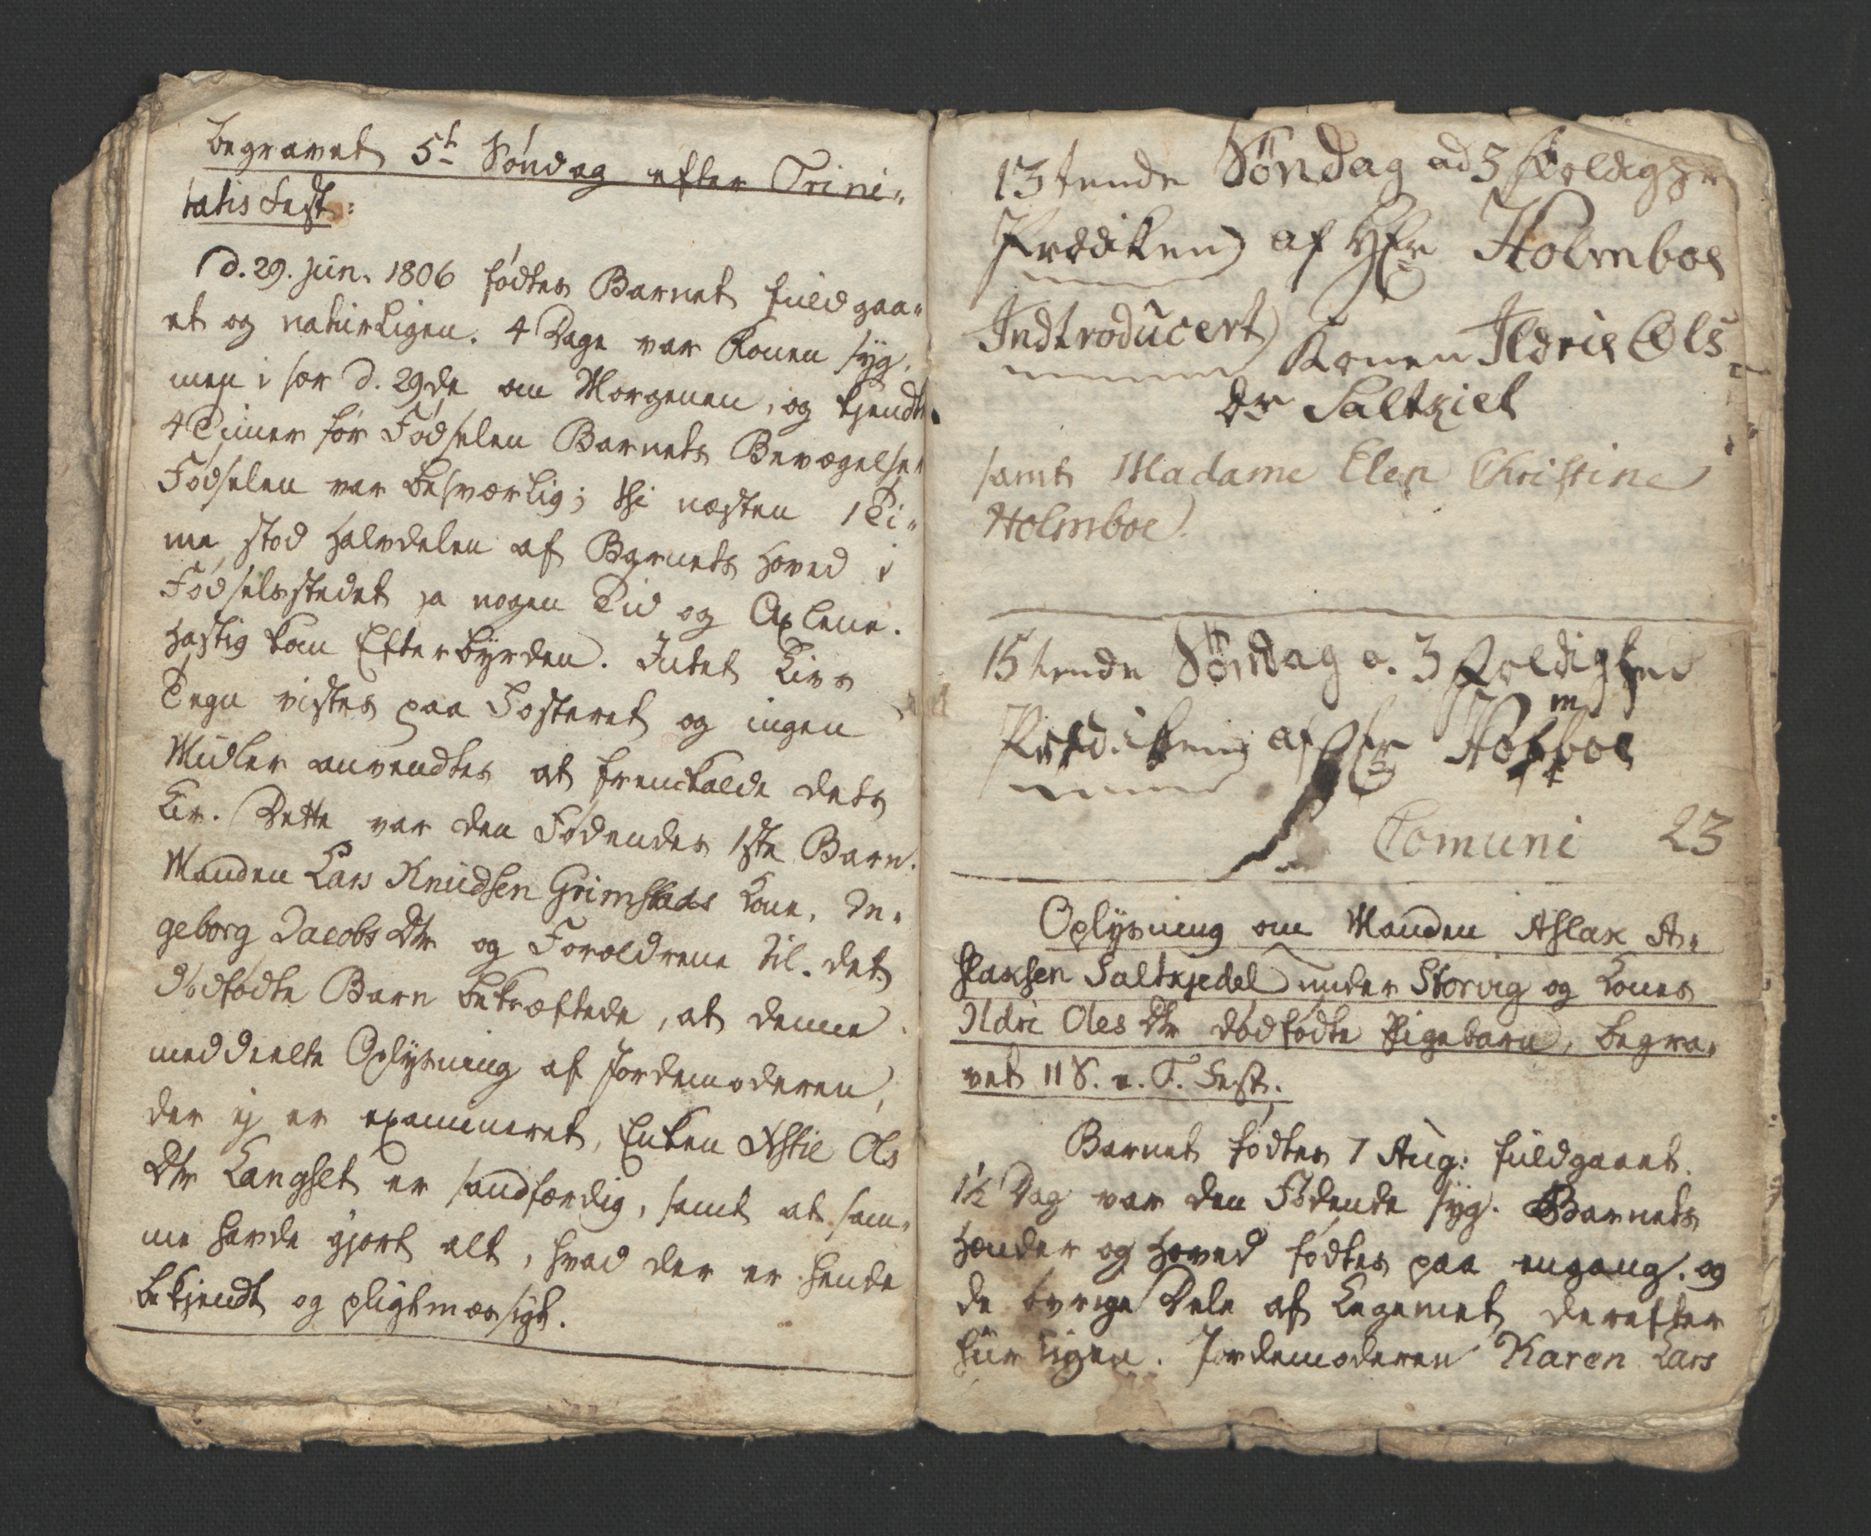 begravet 5t Søndag efter Trini-
tatis Fest:
d. 29. Jun. 1806 fødtes Barnet fuldgaa-
et og naturligen. 4 Dage var Konen syg,
men i sær d. 29de om Morgenen, og kjendte
4 Timer før Fødselen Barnets Bevægelse.
Fødselen var besværlig; thi næsten 1 Ti-
me stod Halvdelen af Barnets Hoved i
Fødselsstedet ja nogen Tid og Axlene.
Hastig kom Efterbyrden. Intet Livs
Tegn vistes paa Fosteret og ingen
Midler anvendtes at fremkalde dets
Liv. Dette var den Fødendes 1ste Barn.
Manden Lars Knudsen Grimstads Kone, In-
geborg Jacobs Dtr og Forældrene til det
dødfødte Barn bekræftede, at denne
meddeelte Oplysning af Jordemoderen,
der ej er examineret, Enken Astie Ols
Dtr Langset er sandfærdig, samt at sam-
me havde gjort alt, hvad der er hende
bekjendt og pligtmæssigt.
13tende Søndag ad 3foldighed
Prædiken af Hr Holmboe
Indtroducert Konen Ildrie Ols
Dr Saltkiel
samt Madame Elen Christine
Holmboe.
15tende Søndag e. 3foldighed
Prædiken af Hr Holmboe
Comuni 23
Oplysning om Manden Aslak A-
slaksen Saltkjedel under Storvig og Kones
Ildri Oles Dtr dødfødte Pigebarn, begra-
vet 11 S. e. T. Fest.
Barnet fødtes 7 Aug: fuldgaaet.
1½ Dag var den Fødende syg. Barnets
Hænder og Hoved fødtes paa engang, og
de øvrige Dele af Legemet derefter
hurtigen. Jordemoderen Karen Lars